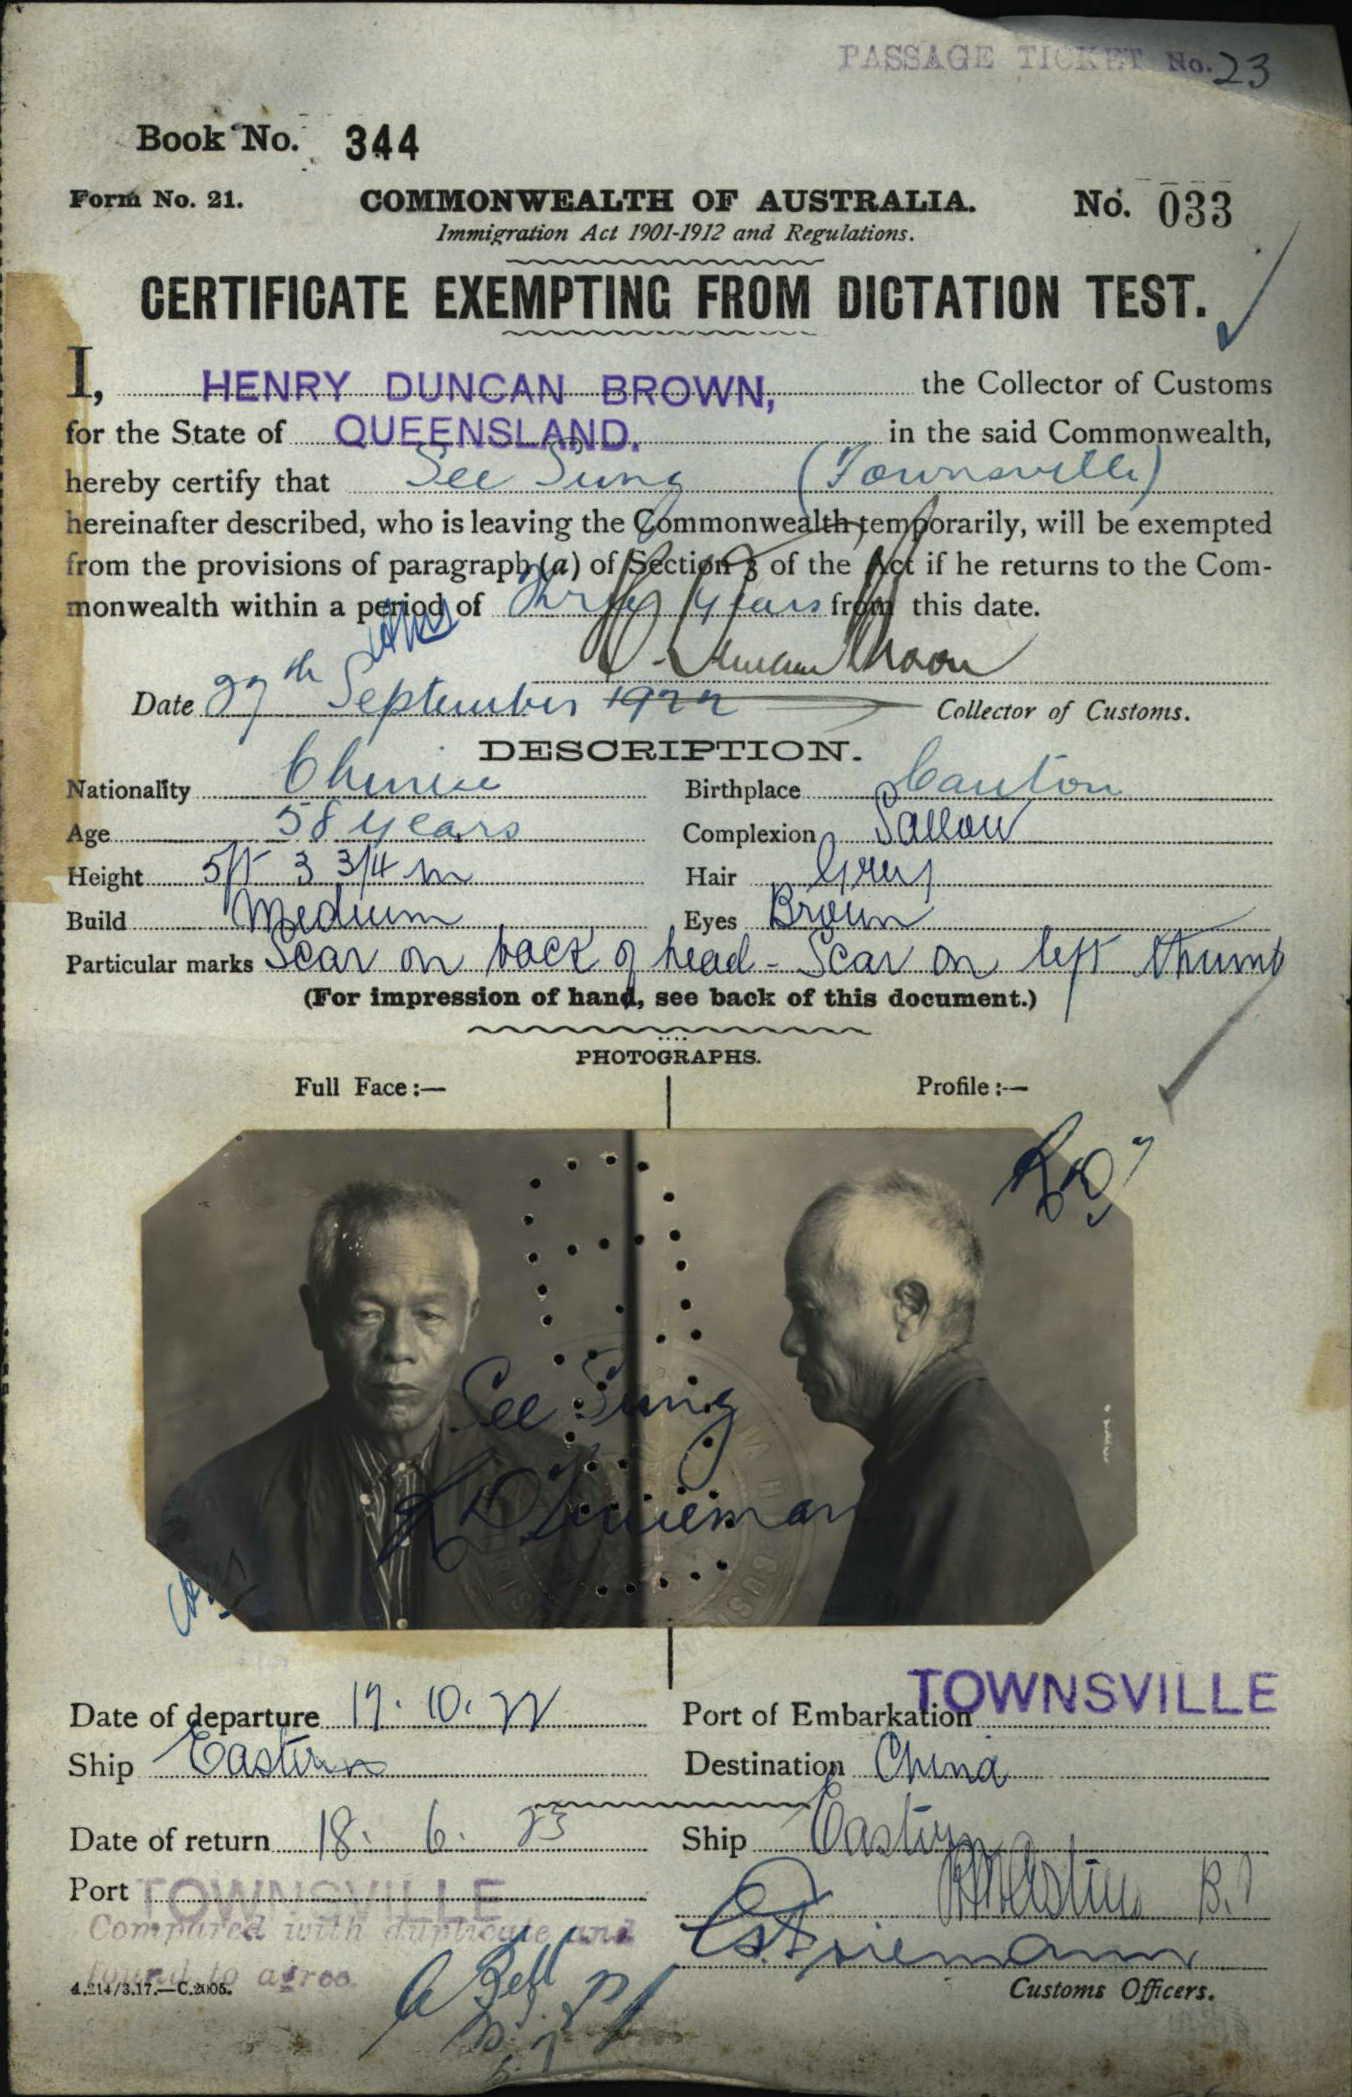 PASSAGE TICKET No. 23
Book No. 344
Form No. 21. COMMONWEALTH OF AUSTRALIA. No. 033
Immigration Act 1901-1912 and Regulations.
CERTIFICATE EXEMPTING FROM DICTATION TEST.
I, HENRY DUNCAN BROWN, the Collector of Customs
for the State of QUEENSLAND. in the said Commonwealth,
hereby certify that See Sung (Townsville)
hereinafter described, who is leaving the Commonwealth temporarily, will be exempted
from the provisions of paragraph (a) of Section 3 of the Act if he returns to the Com-
monwealth within a period of Three years from this date.
Date 27th September 1922 Collector of Customs.
DESCRIPTION.
Nationality Chinese Birthplace Canton
Age 58 years Complexion Sallow
Height 5ft 3 3/4 in Hair Grey
Build Medium Eyes Brown
Particular marks Scar on back of head - Scar on left thumb
(For impression of hand, see back of this document.)
PHOTOGRAPHS.
Full Face:— Profile:—
See Sung
Date of departure 17. 10. 22 Port of Embarkation TOWNSVILLE
Ship Eastern Destination China
Date of return 18. 6. 23 Ship Eastern
Port TOWNSVILLE
Compared with duplicate and
found to agree.
4.214/3.17.—C.2005. Customs Officers.